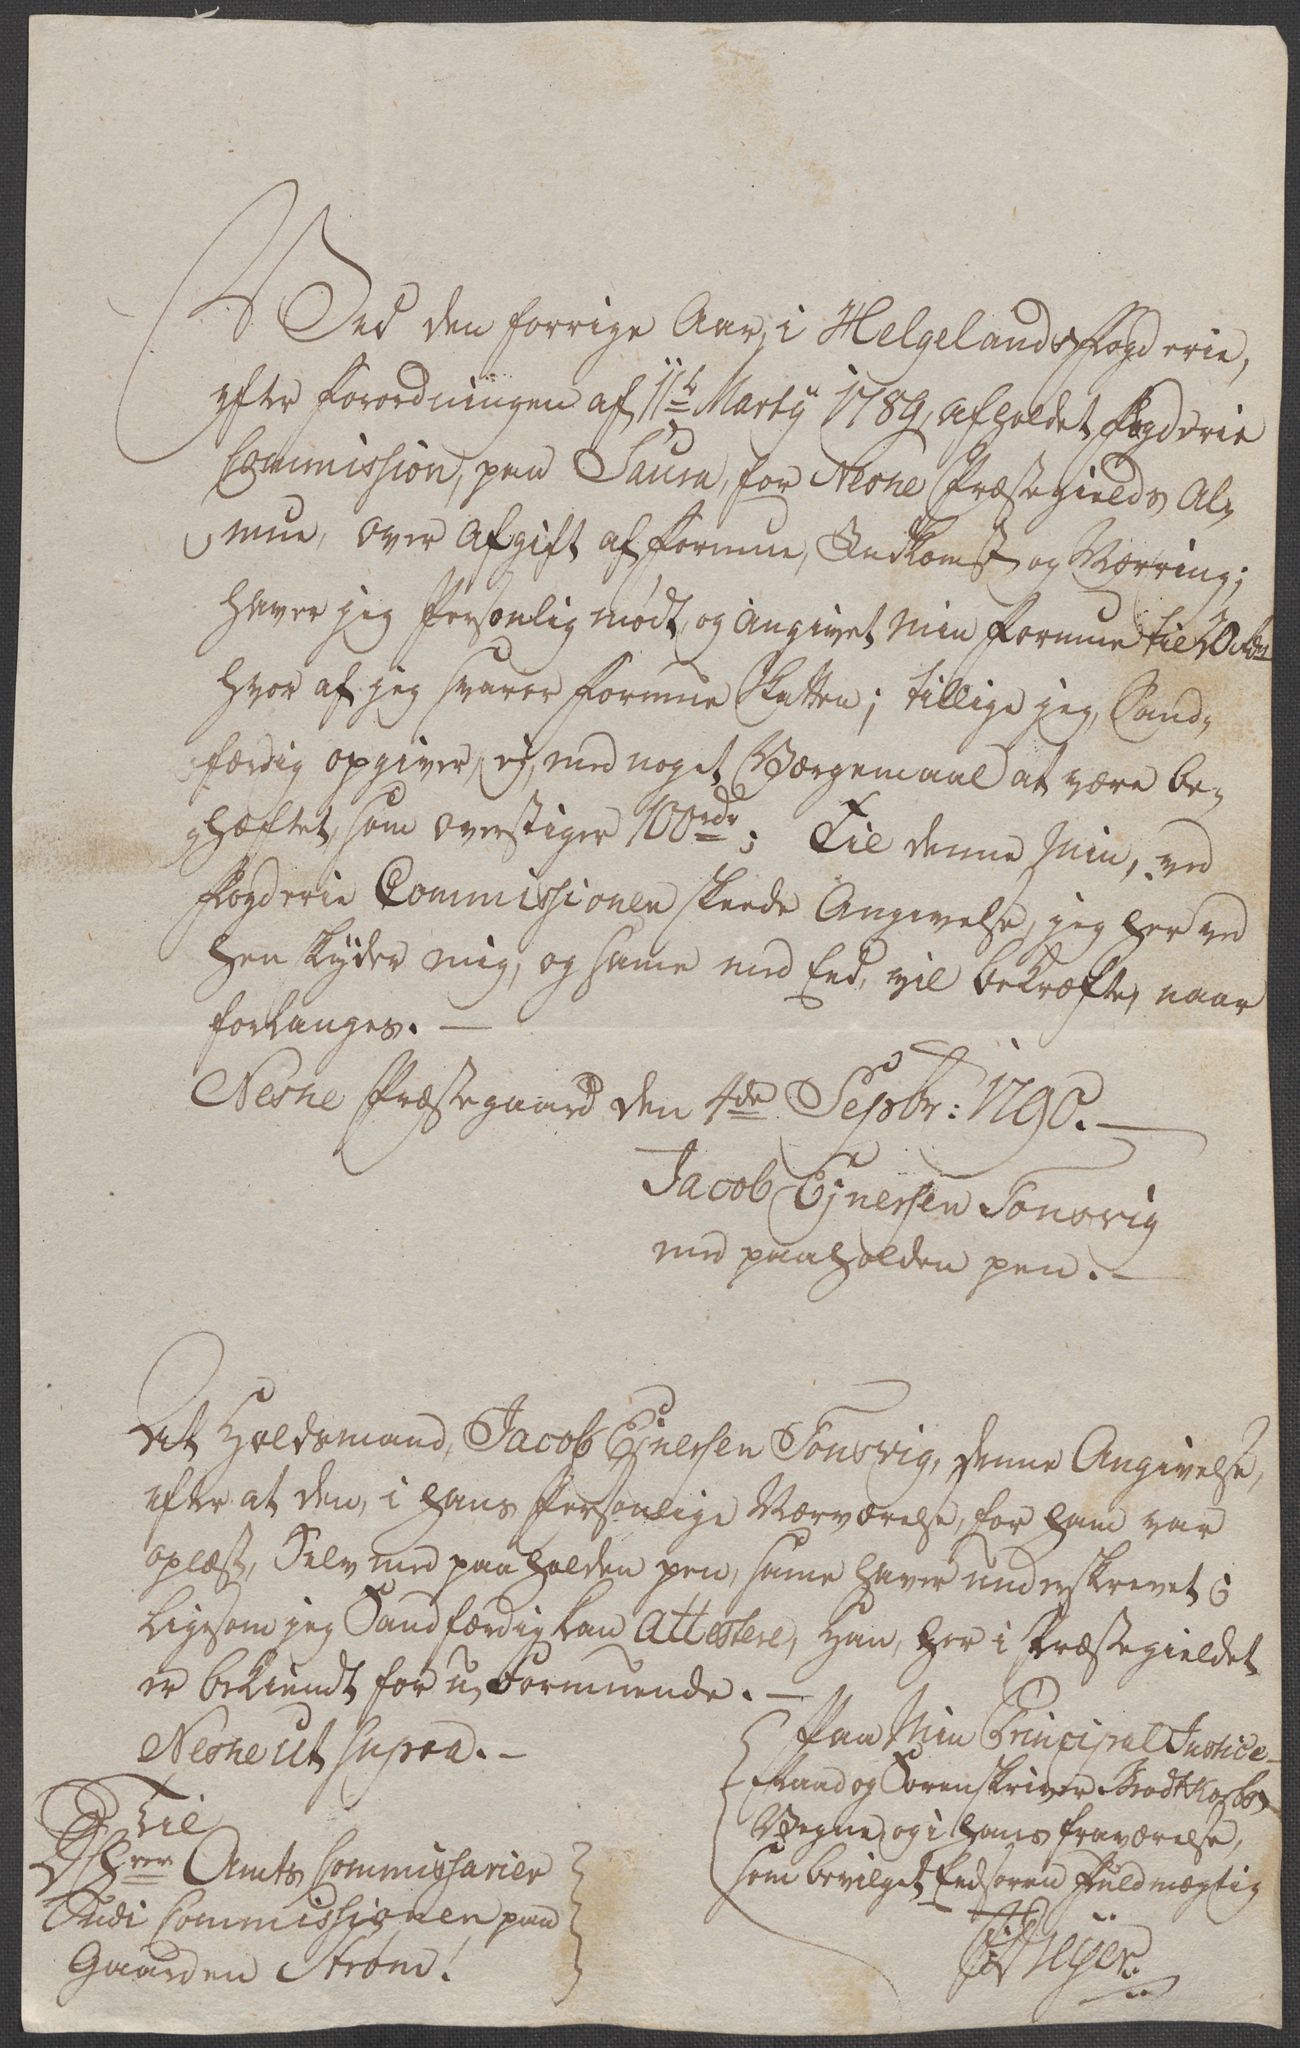 Ved den forrige Aar, i Helgelands Fogderie,
efter Forordningen af 11te Martÿ 1789, afholdet Fogderie
Commission, paa Saura, for Nesne Præstegields Al-
mue, over Afgift af Formue, Indkomst og Næring;
haver jeg Personlig mødt, og angivet min Formue til
hvor af jeg svarer Formue Skatten; tillige jeg, Sand-
færdig opgiver, ej, med noget Værgemaal at være be-
hæftet, som overstiger 100rdr; Til denne min, ved
Fogderie Commissionen skeede Angivelse, jeg her ved
hen skÿder mig, og same med Eed, vil bekræfte, naar
forlanges. —
Nesne Præstegaard den 4de Sepbr: 1790. —
Jacob Ejnersen Tonsvig
med paaholden pen. —
At Gaardsmand, Jacob Ejnersen Tonsvig, denne Angivelse,
efter at den, i hans Personlige Nærværelse, for ham var
oplæst, Selv med paaholden pen, same haver underskrevet;
ligesom jeg Sandfærdig kan attestere, Han, her i Præstegieldet
er bekiendt for u-formuende. —
Nesne ut supra. —
Paa Min Principal Justice-
Raad og Sorenskriver Brodtkorbs
Vegne, og i hans fraværelse,
som bevilget Eedsoren Fuldmægtig
Meÿer
Til
Hrrer Amts Commissarier
udi Commissionen paa
Gaarden Strøm!